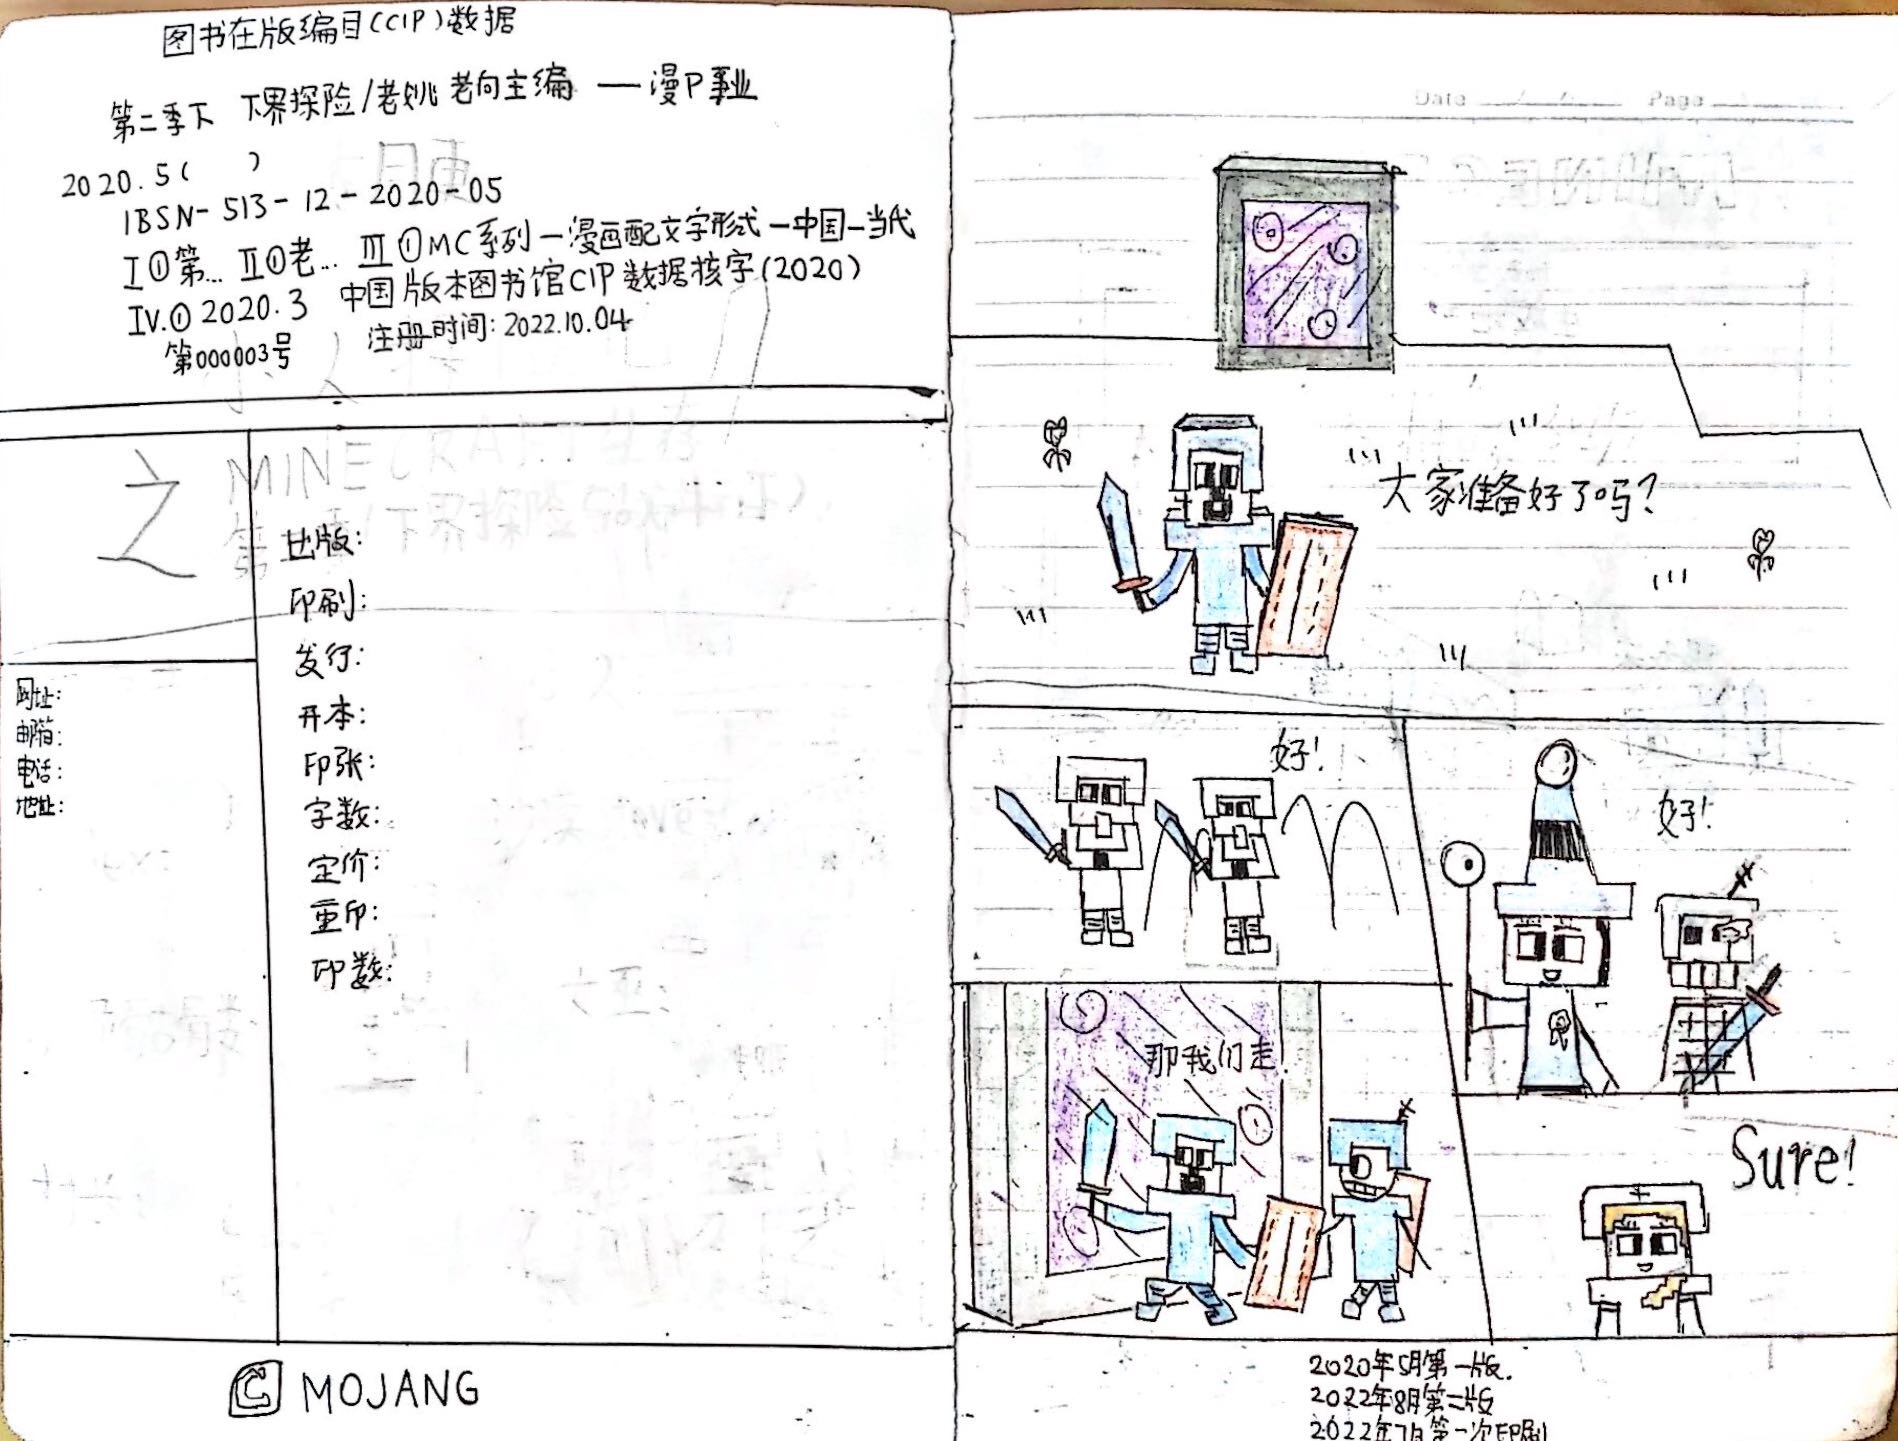 图书在版编目(CIP)数据
第二季下 下界探险/老姚 老向主编 — 漫P事业
2020.5( )
IBSN-513-12-2020-05
I①第… II①老… III①MC系列-漫画配文字形式-中国-当代
IV.①2020.3 中国版本图书馆CIP数据核字(2020)
第000003号 注册时间:2022.10.04
之
MINECRAFT生存
下界探险
出版:
印刷:
发行:
开本:
印张:
字数:
定价:
重印:
印数:
网址:
邮箱:
电话:
地址:
C MOJANG
Date Page
大家准备好了吗?
好!
好!
那我们走!
Sure!
2020年5月第一版.
2022年8月第二版
2022年7月第一次印刷